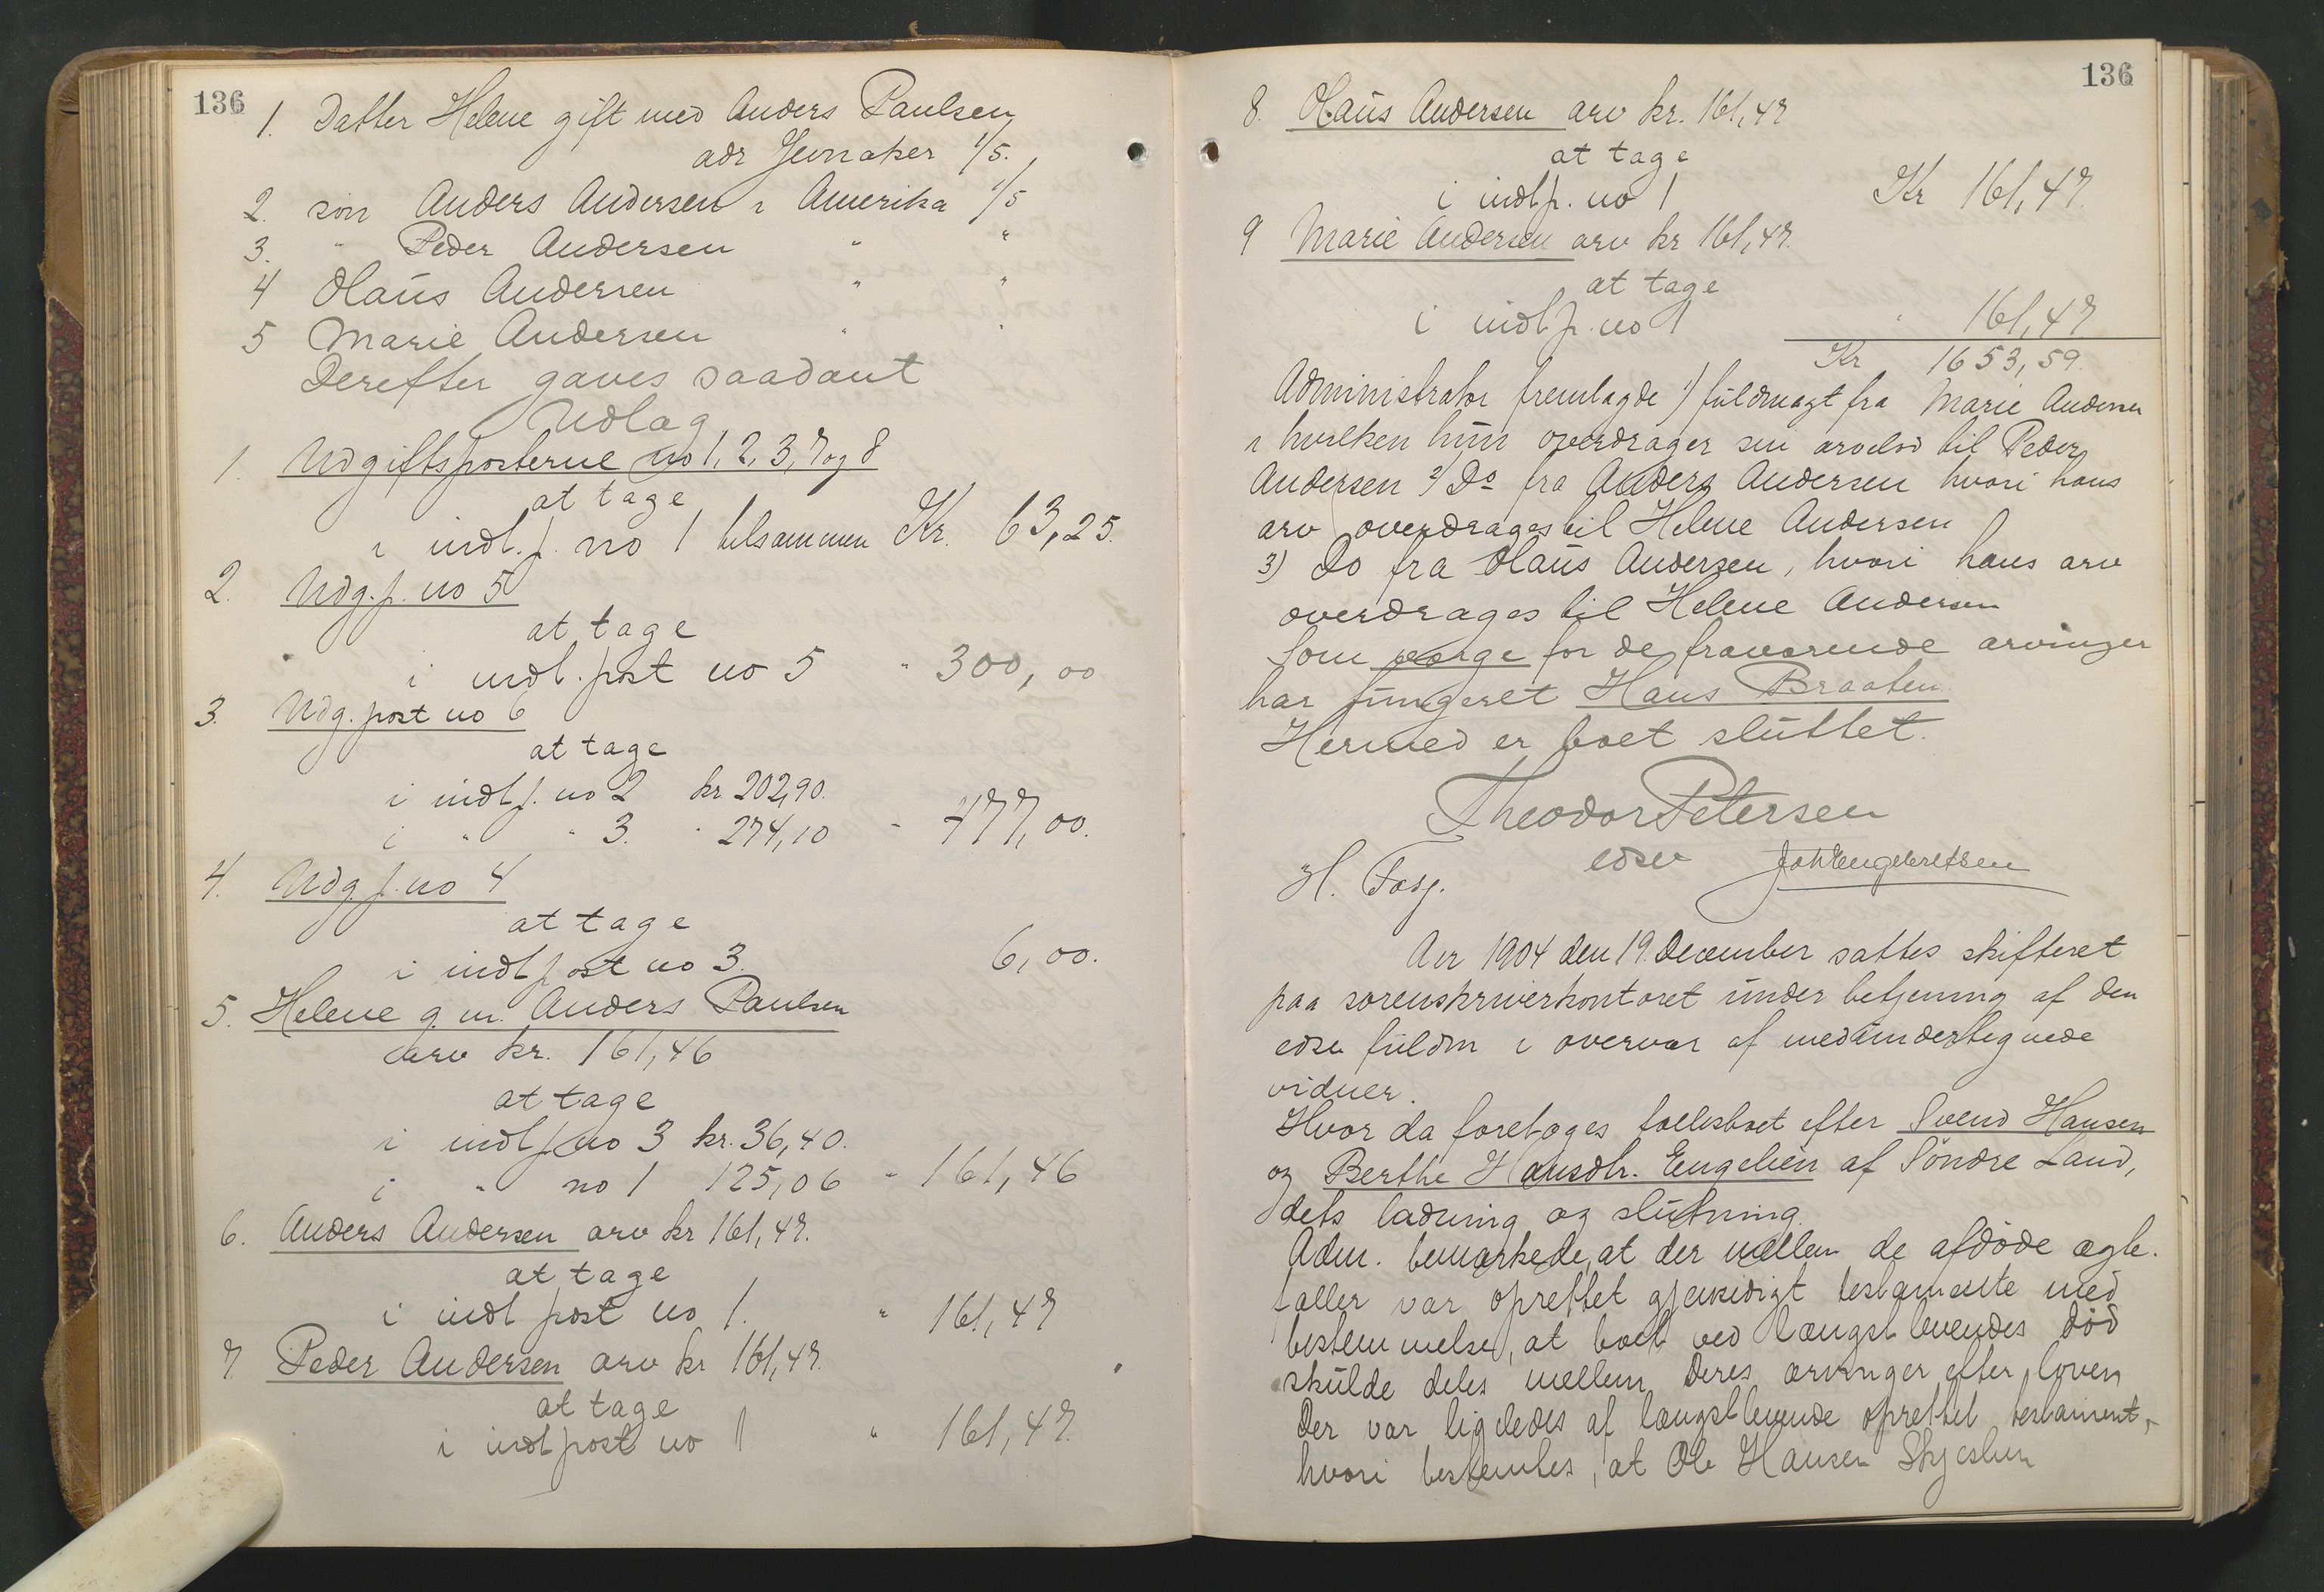 136
1. Datter Helene gift med Anders Paulsen
adr Jevnaker 1/5.
2. søn Anders Andersen i Amerika 1/5
3. " Peder Andersen " "
4 Olaus Andersen " "
5 Marie Andersen " "
Derefter gaves saadant
Udlag
1. Udgiftsposterne no 1, 2, 3, 7 og 8
at tage
i indt. p. no 1 tilsammen Kr. 63,25.
2. Udg. p. no 5
at tage
i indt. post no 5 " 300,00
3. Udg. post no 6
at tage
i indt p. no 2 kr. 202,90.
i " " 3. " 274,10 " 477,00.
4. Udg. p. no 4
at tage
i indt post no 3. 6,00.
5. Helene g. m. Anders Paulsen
arv kr. 161,46
at tage
i indt p no 3 kr. 36,40.
i " no 1 125,06 " 161,46
6. Anders Andersen arv kr 161,47.
at tage
i indt post no 1. " 161,47
7 Peder Andersen arv kr 161,47.
at tage
i indt post no 1 " 161,47.
136
8. Olaus Andersen arv kr. 161,47
at tage
i indt p. no 1 Kr 161,47.
9 Marie Andersen arv kr 161,47.
at tage
i indt p. no 1 " 161,47
Kr 1653,59.
Administrator fremlagde 1) fuldmagt fra Marie Andersen
i hvilken hun overdrager sin arvelod til Peder
Andersen 2) Do fra Anders Andersen hvori hans
arv overdrages til Helene Andersen
3) Do fra Olaus Andersen, hvori hans arv
overdrages til Helene Andersen
Som værge for de fraværende arvinger
har fungeret Hans Braaten.
Hermed er boet sluttet.
Theodor Petersen
edsv Joh Engebretsen
H. Fosg.
Aar 1904 den 19. December sattes skifteret
paa sorenskriverkontoret under betjening af den
edsv fuldm i overvær af medundertegnede
vidner.
Hvor da foretoges fællesboet efter Svend Hansen
og Berthe Hansdtr. Engelien af Søndre Land,
dets ladning og slutning.
Adm. bemærkede, at der mellem de afdøde ægte-
fæller var oprettet gjensidigt testamente med
bestemmelse, at boet ved længstlevendes død
skulde deles mellem deres arvinger efter loven
Der var ligeledes af længstlevende oprettet testament,
hvori bestemtes, at Ole Hansen